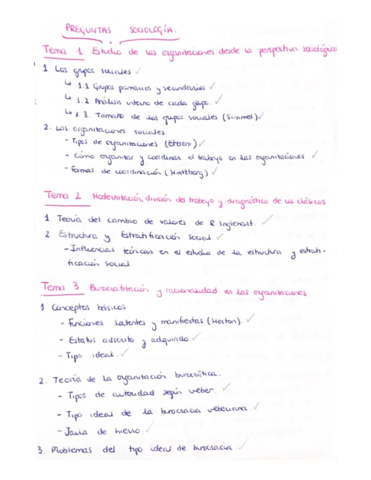 PREGUNTAS SOCIOLOGÍA.
Tema 1 Estudio de las organizaciones desde la perspectiva sociológica
1 Los grupos sociales ✓
↳ 1.1 Grupos primarios y secundarios ✓
↳ 1.2 Análisis interno de cada grupo. ✓
↳ 1.3. Tamaño de los grupos sociales (Simmel) ✓
2. Las organizaciones sociales
- Tipos de organizaciones (Etzioni) ✓
- Cómo organizar y coordinar el trabajo en las organizaciones ✓
- Formas de coordinación (Mintzberg) ✓
Tema 2 Modernización, división del trabajo y diagnóstico de los clásicos
1 Teoría del cambio de valores de R Inglehart. ✓
2 Estructura y Estratificación social ✓
- Influencias teóricas en el estudio de la estructura y estrati-
ficación social
Tema 3 Burocratización y racionalidad en las organizaciones
1 Conceptos básicos ✓
- Funciones latentes y manifiestas (Merton) ✓
- Estatus adscrito y adquirido ✓
- Tipo ideal ✓
2. Teoría de la organización burocrática. ✓
- Tipos de autoridad según Weber ✓
- Tipo ideal de la burocracia weberiana ✓
- Jaula de hierro ✓
3 Problemas del tipo ideal de burocracia ✓